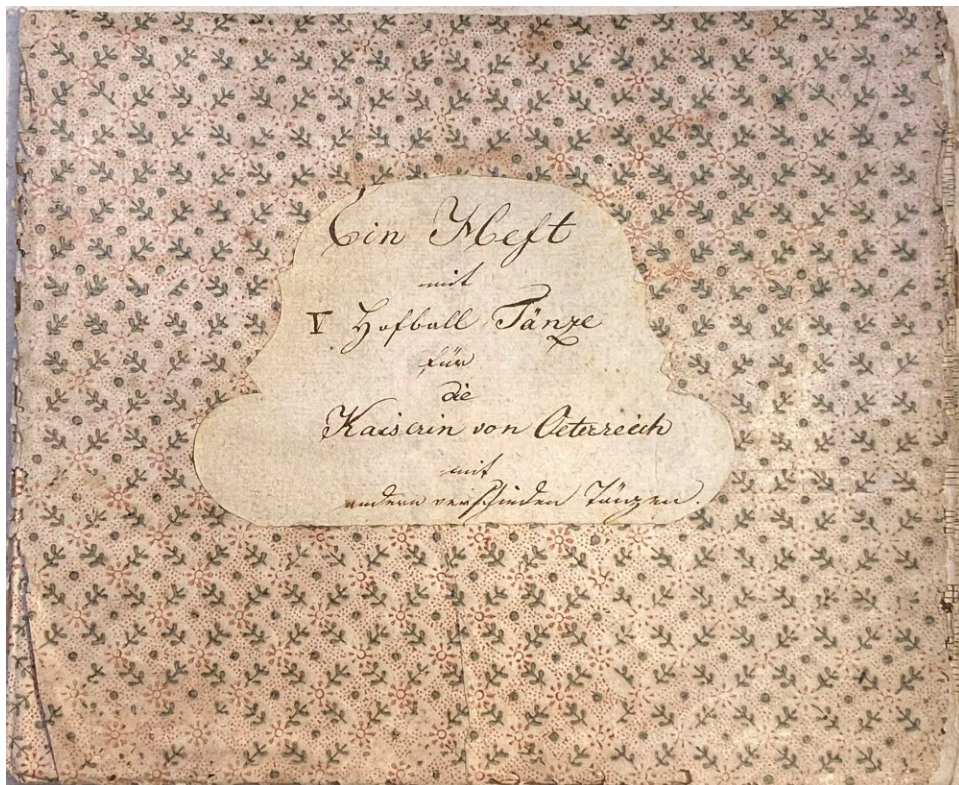 Ein Heft
mit
V Hofball Tänze
für
die
Kaiserin von Oeterreich
mit
andern verschieden Tänzen.